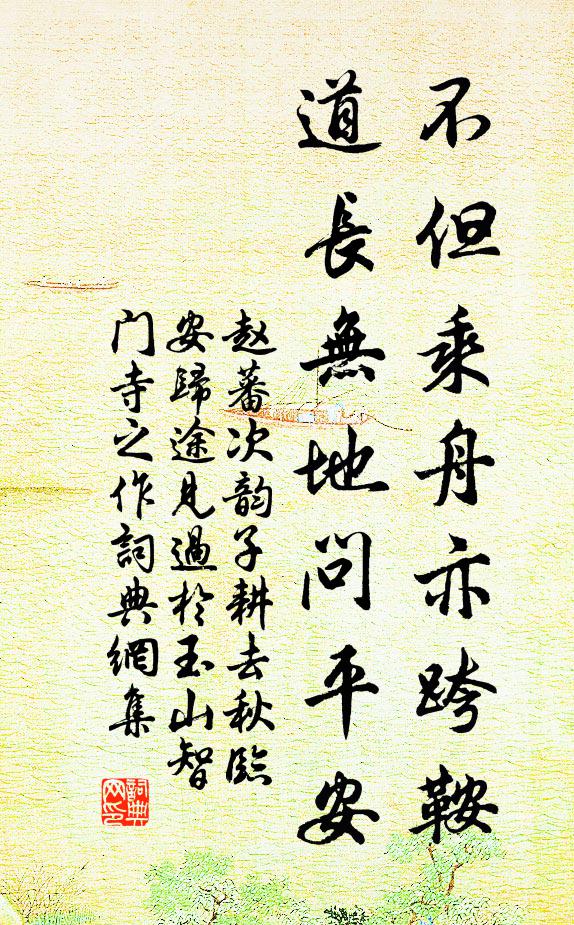 不但乘舟亦跨鞍
道長無地問平安
赵蕃次韵子耕去秋臨
安歸途見過於玉山智
门寺之作詞典網集
詞典
网印